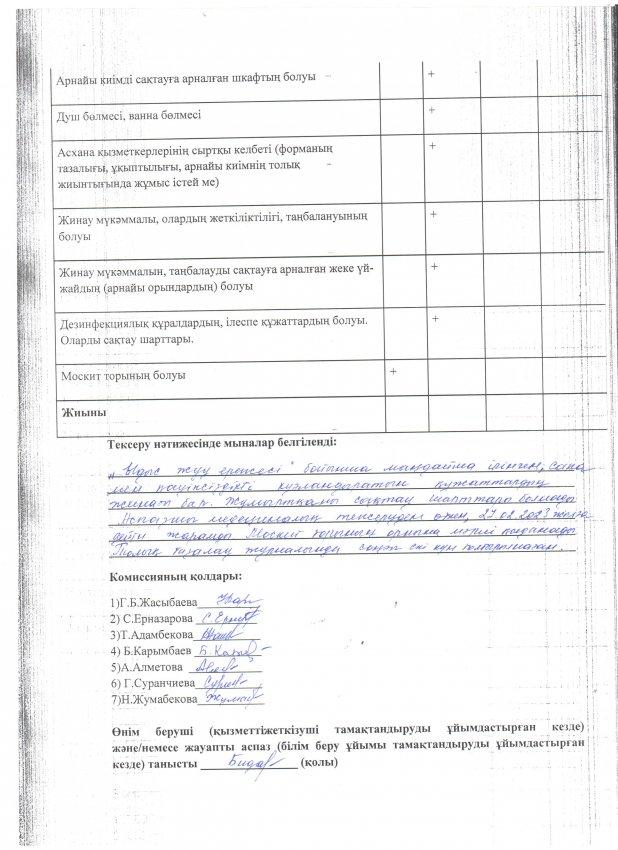 Арнайы киімді сақтауға арналған шкафтың болуы +
Душ бөлмесі, ванна бөлмесі +
Асхана қызметкерлерінің сыртқы келбеті (форманың +
тазалығы, ұқыптылығы, арнайы киімнің толық
жиынтығында жұмыс істей ме)
Жинау мүкәммалы, олардың жеткіліктілігі, таңбалануының +
болуы
Жинау мүкәммалын, таңбалауды сақтауға арналған жеке үй- +
жайдың (арнайы орындардың) болуы
Дезинфекциялық құралдардың, ілеспе құжаттардың болуы. +
Оларды сақтау шарттары.
Москит торының болуы +
Жиыны
Тексеру нәтижесінде мыналар белгіленді:
"Ыдыс жуу ережесі" бойынша маңдайша ілінген, сапа
мен қауіпсіздікті куәландыратын құжаттардың
жинағы бар. Жұмыртқаны сақтау шарттары
медициналық тексеруден өткен, 27.02.2023
дейін жарамды Москит торының орнына
журналында соңғы екі күн толтырылмаған.
Комиссияның қолдары:
1)Г.Б.Жасыбаева
2) С.Ерназарова С.Ерн
3)Т.Адамбекова
4) Б.Карымбаев
5)А.Алметова
6) Г.Суранчиева
7)Н.Жумабекова
Өнім беруші (қызметтіжеткізуші тамақтандыруды ұйымдастырған кезде)
және/немесе жауапты аспаз (білім беру ұйымы тамақтандыруды ұйымдастырған
кезде) танысты (қолы)